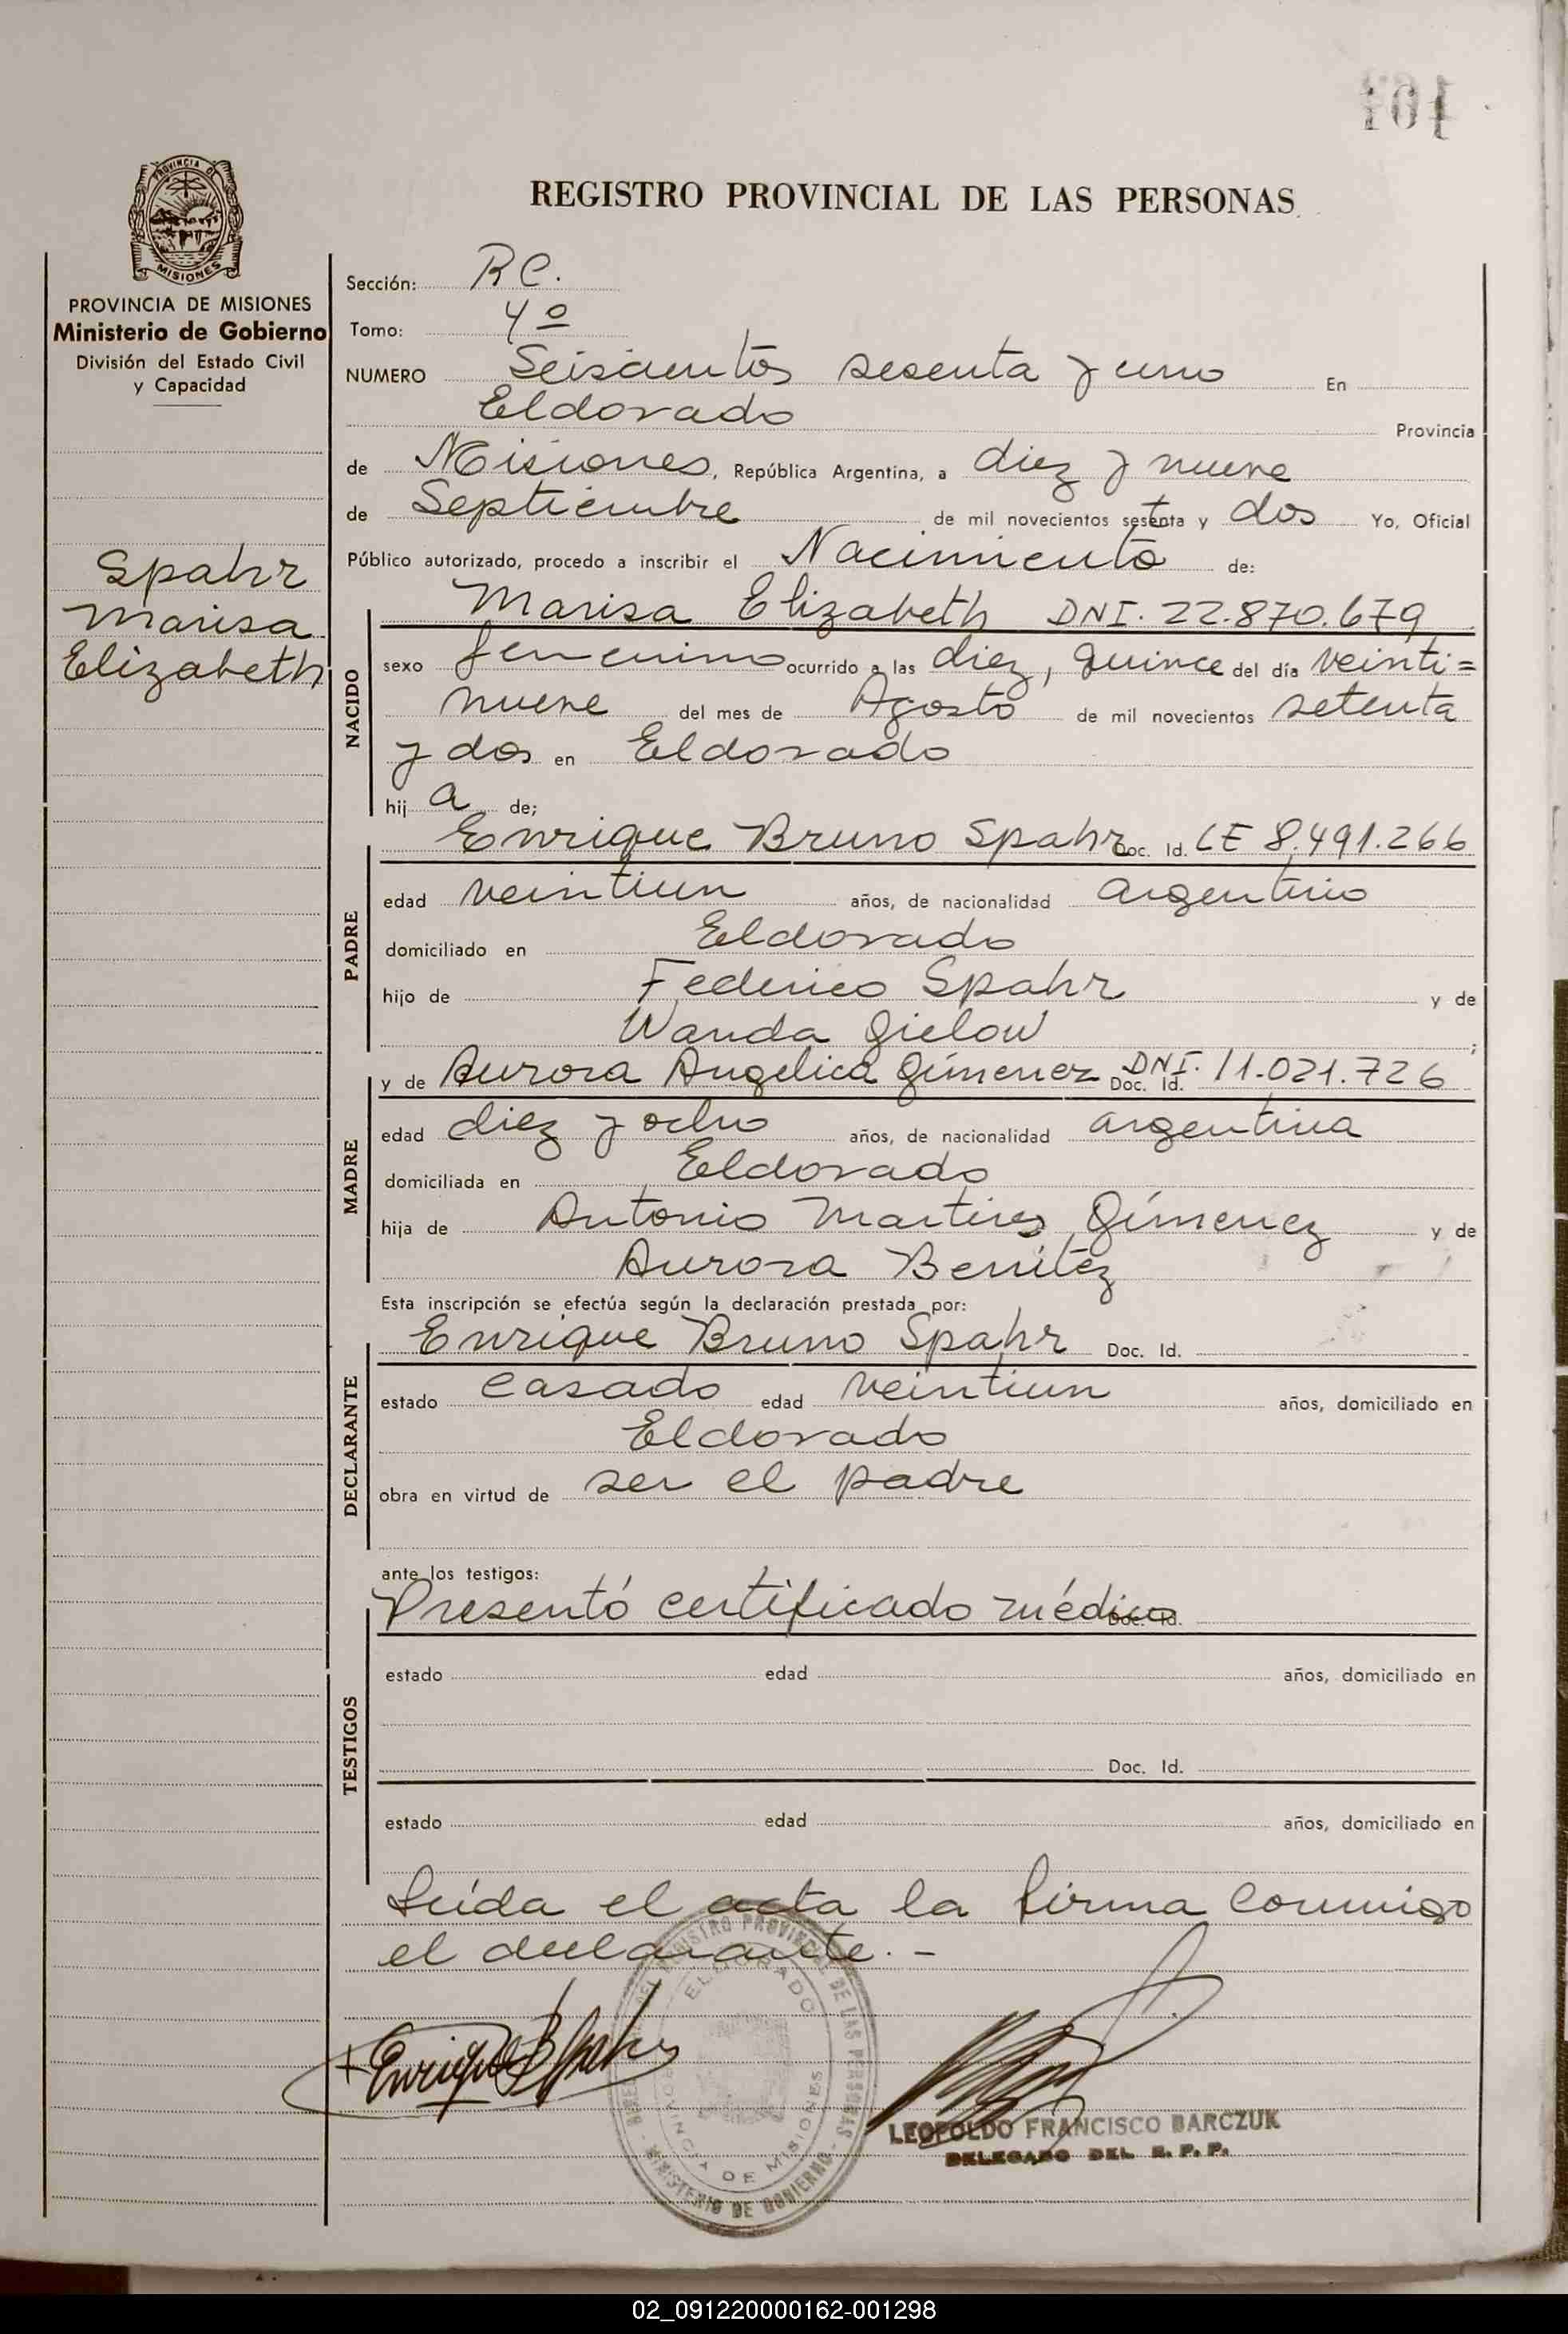 161
PROVINCIA DE
MISIONES
PROVINCIA DE MISIONES
Ministerio de Gobierno
División del Estado Civil
y Capacidad
Spahr
Marisa
Elizabeth
REGISTRO PROVINCIAL DE LAS PERSONAS
Sección: RC.
Tomo: 4º
NUMERO Seiscientos sesenta y uno En
Eldorado Provincia
de Misiones, República Argentina, a diez y nueve
de Septiembre de mil novecientos setenta y dos Yo, Oficial
Público autorizado, procedo a inscribir el Nacimiento de:
NACIDO
Marisa Elizabeth DNI. 22.870.679
sexo femenino ocurrido a las diez, quince del día veinti=
nueve del mes de Agosto de mil novecientos setenta
y dos en Eldorado
hij a de;
PADRE
Enrique Bruno Spahr Doc. Id. LE 8.491.266
edad veintiun años, de nacionalidad argentino
domiciliado en Eldorado
hijo de Federico Spahr y de
Wanda Gielow ;
MADRE
y de Aurora Angelica Gímenez Doc. Id. DNI. 11.021.726
edad diez y ocho años, de nacionalidad argentina
domiciliada en Eldorado
hija de Antonio Martires Gímenez y de
Aurora Benítez
Esta inscripción se efectúa según la declaración prestada por:
DECLARANTE
Enrique Bruno Spahr Doc. Id.
estado casado edad veintiun años, domiciliado en
Eldorado
obra en virtud de ser el padre
ante los testigos:
TESTIGOS
Presentó certificado médico Doc. Id.
estado edad años, domiciliado en
Doc. Id.
estado edad años, domiciliado en
Leída el acta la firma conmigo
el declarante. -
REGISTRO PROVINCIAL DE LAS PERSONAS
MINISTERIO DE GOBIERNO
ELDORADO
PROVINCIA DE MISIONES
Enrique B Spahr
LEOPOLDO FRANCISCO BARCZUK
DELEGADO DEL R. P. P.
02_091220000162-001298